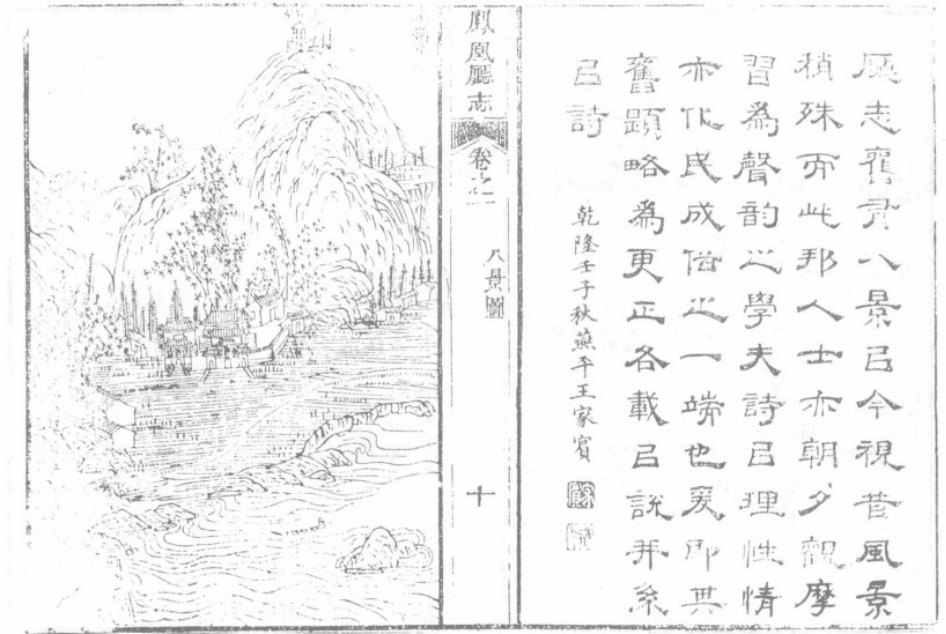 厥志舊有八景㠯今視昔風景
稍殊而此邦人士亦朝夕觀摩
習爲聲韵之學夫詩㠯理性情
亦化民成俗之一端也爰即其
舊題略爲更正各載㠯說并系
㠯詩
乾隆壬子秋燕平王家賓
鳳凰廳志
卷之二
八景圖
十